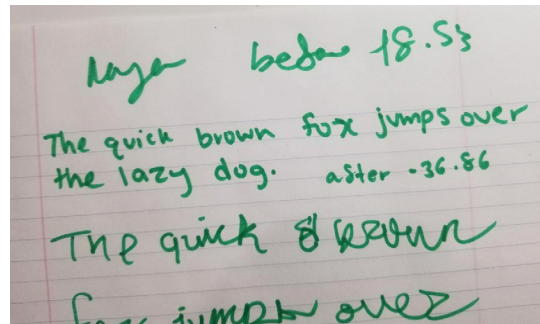 before 18.53
The quick brown fox jumps over
the lazy dog. after -36.86
The quick brown
fox jumps over